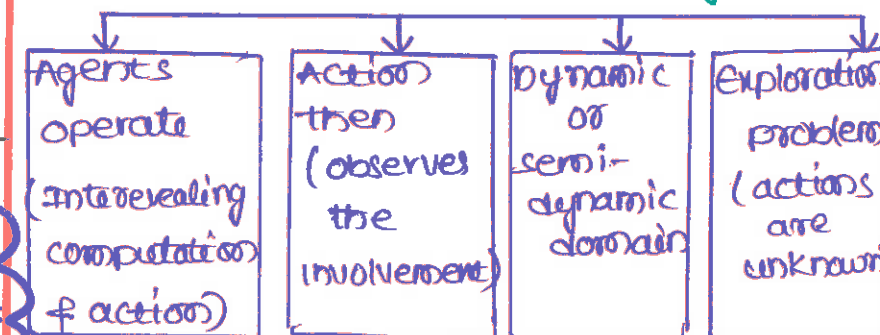 Agents
operate
(Interevealing
computation
& action)
Action
then
(observes
the
involvement)
Dynamic
or
semi-
dynamic
domain
Exploration
problem
(actions
are
unknown